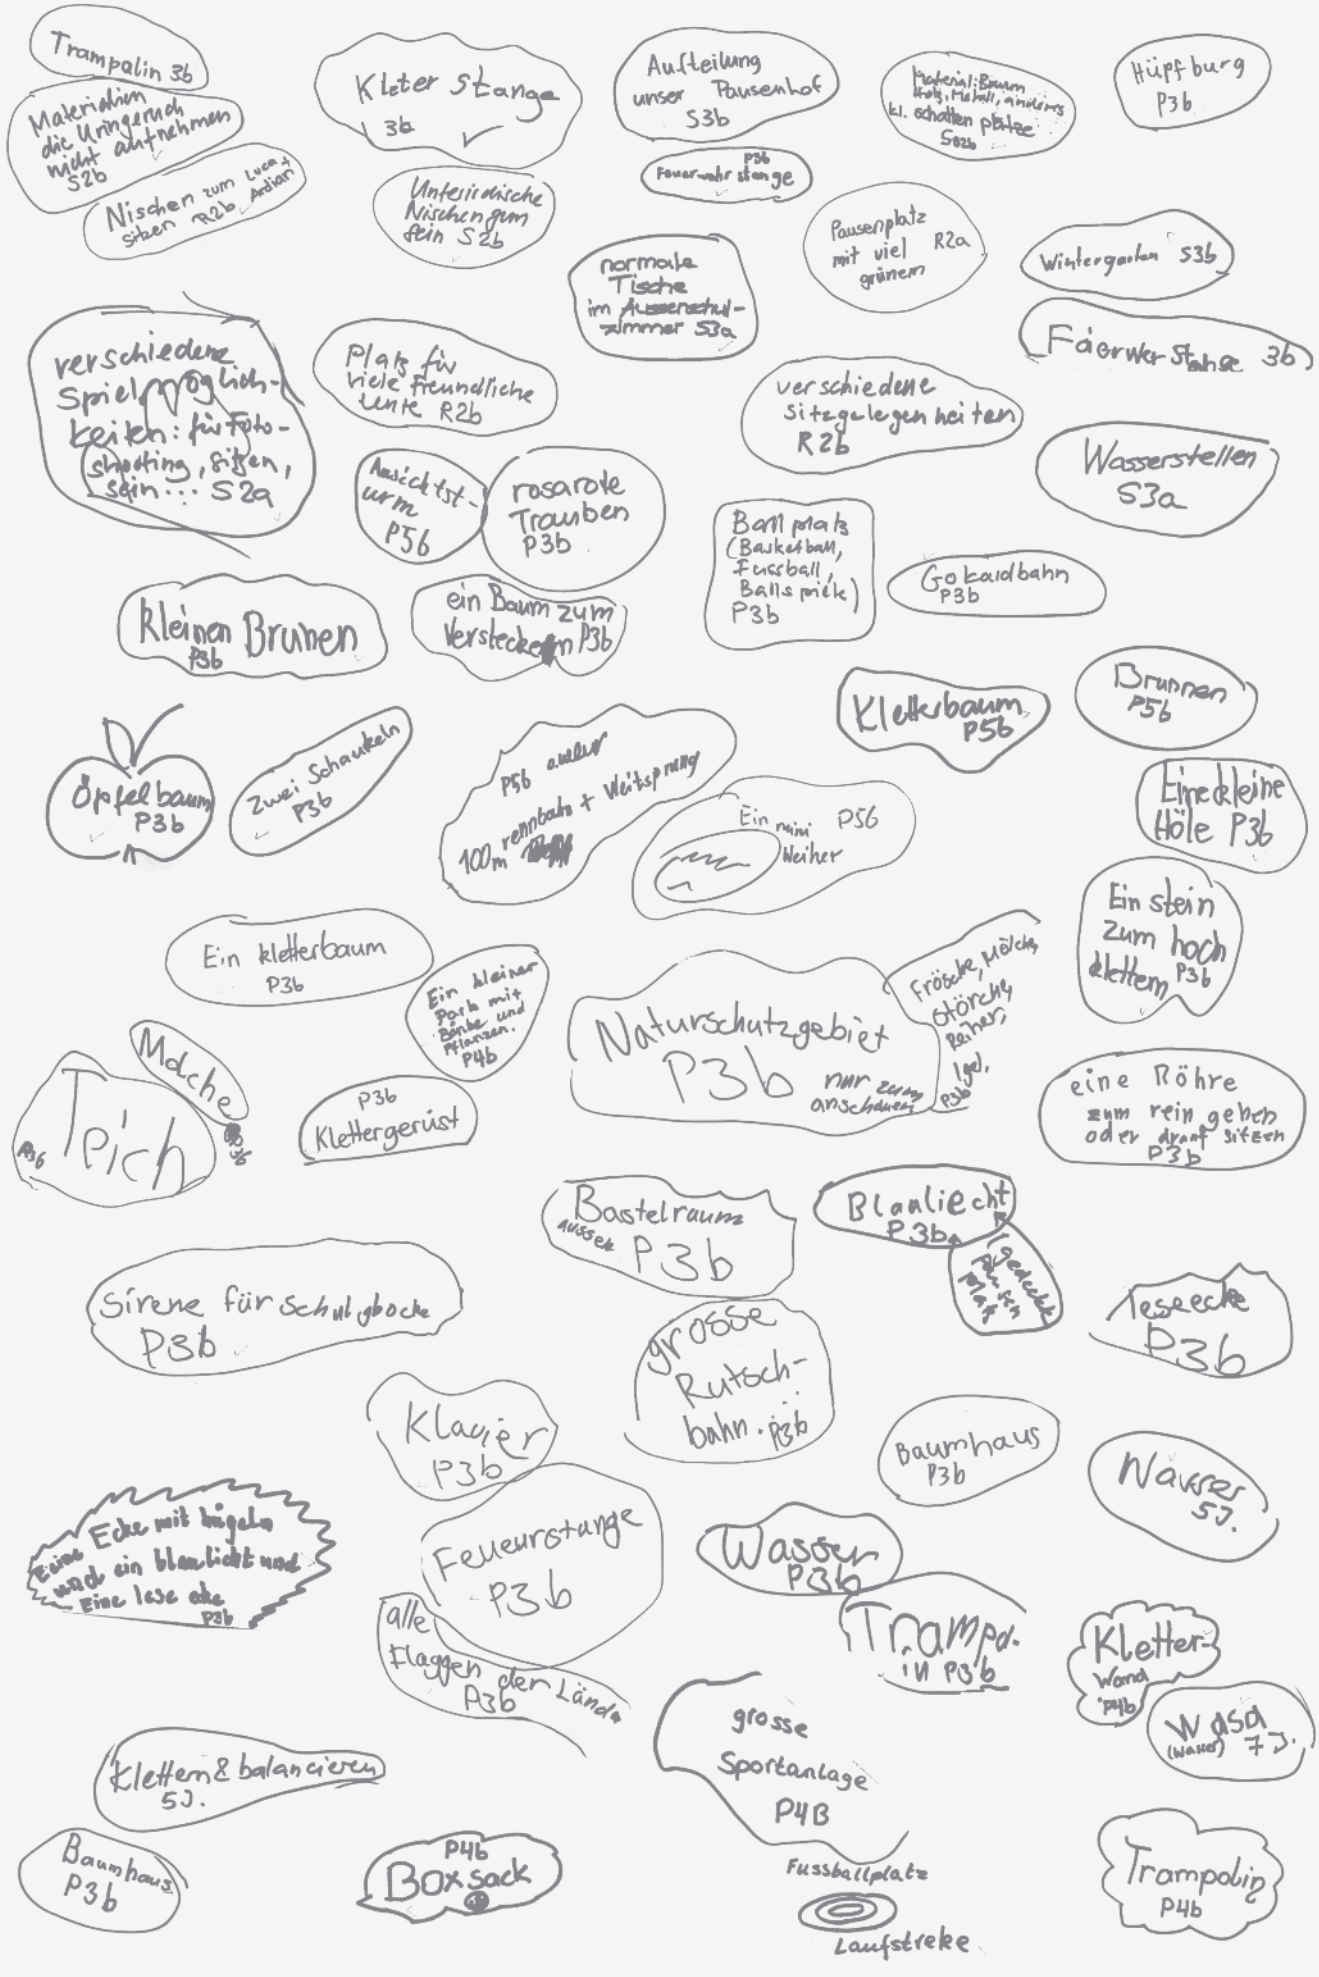 Trampalin 3b
Materialien
die Uringeruch
nicht aufnehmen
S2b
Nischen zum Luca +
sitzen R2b Ardian
Kleter stange
3b
Unterirdische
Nischen zum
sein S2b
Aufteilung
unser Pausenhof
S3b
P3b
Feuerwehr stange
Material: Baum
Holz, Metall, anderes
kl. schatten plätze
S02b
Hüpfburg
P3b
normale
Tische
im Aussenschul-
zimmer S3a
Pausenplatz
mit viel R2a
grünem
Wintergarten S3b
Fäerwer Stange 3b
verschiedene
Spielmöglich-
keiten: für Foto-
shooting, sitzen,
sein... S2a
Platz für
viele freundliche
Leute R2b
verschiedene
sitzgelegenheiten
R2b
Wasserstellen
S3a
Aussichtst-
urm
P5b
rosarote
Trauben
P3b
Ball platz
(Basketball,
Fussball,
Ballspiele)
P3b
Gokardbahn
P3b
kleinen Brunen
P3b
ein Baum zum
Verstecken P3b
Kletterbaum
P5b
Brunnen
P5b
Öpfelbaum
P3b
zwei Schaukeln
P3b
P5b
100m rennbahn + Weitsprung
Ein mini P5b
Weiher
Eine kleine
Höle P3b
Ein stein
zum hoch
klettern P3b
Ein kletterbaum
P3b
Ein kleiner
Park mit
Bänke und
Pflanzen.
P4b
Naturschutzgebiet
P3b nur zum
anschauen
Frösche, Mölche,
störche,
Reiher,
Igel,
P3b
Molche
P3b
Teich
P3b
P3b
Klettergerüst
eine Röhre
zum rein gehen
oder drauf sitzen
P3b
Bastelraum
aussen P3b
Blauliecht
P3b
gedeckte
pausen
platz
Sirene für schulgbocke
P3b
grosse
Rutsch-
bahn. P3b
leseecke
P3b
Klavier
P3b
Baumhaus
P3b
Wasser
5J.
Eeine Ecke mit hügeln
und ein blaulicht und
Eine lese eke
P3b
Feuerstange
P3b
Wasser
P3b
Trampol-
in P3b
alle
Flaggen der Länder
P3b
Kletter-
wand
P4b
grosse
Sportanlage
P4B
Wasa
(Wasser) 7J.
Klettern & balancieren
5J.
Baumhaus
P3b
P4b
Boxsack
Fussballplatz
Laufstreke
Trampolin
P4b